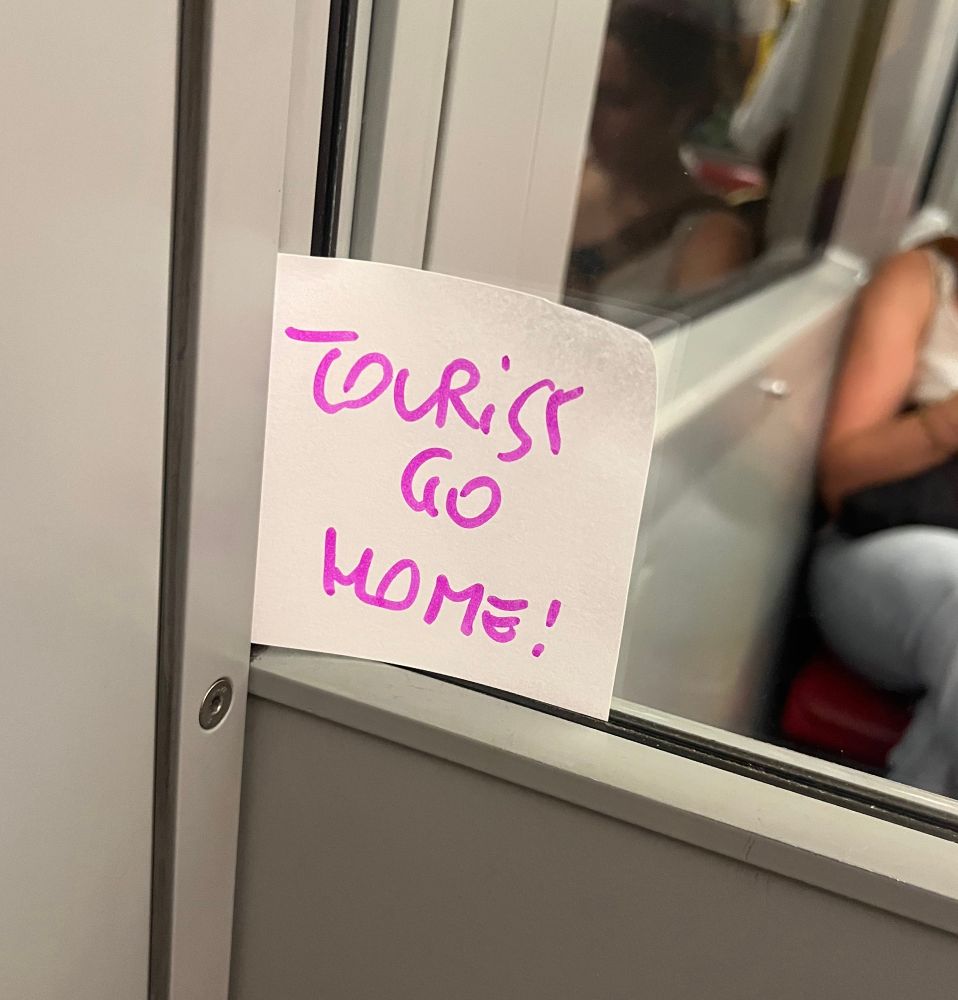 TOURiST
GO
HOME!